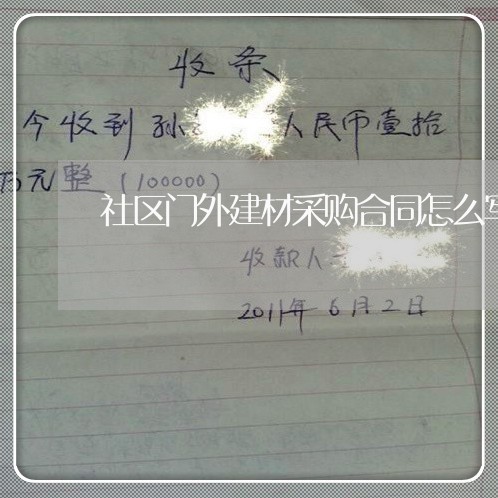 收条
今收到孙 人民币壹拾
万元整(100000)
社区门外建材采购合同怎么写
收款人
2011年6月2日